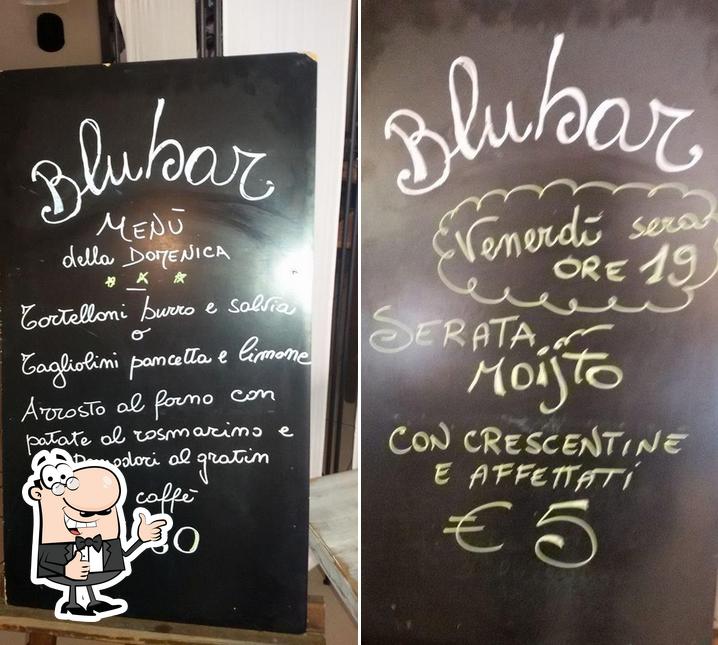 Blubar
MENÙ
della DOMENICA
Tortelloni burro e salvia
o
Tagliolini pancetta e limone
Arrosto al forno con
patate al rosmarino e
Pomodori al gratin
caffè
Blubar
Venerdì sera
ORE 19
SERATA
MOIJTO
CON CRESCENTINE
E AFFETTATI
€ 5